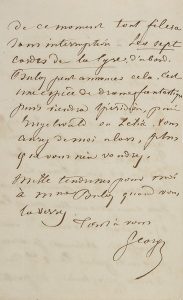 de ce moment tout filera
sans interruption – les sept
cordes de la lyre d'abord.
Buloz peut annoncer cela. C'est
une espèce de drame fantastique
puis viendra Spiridion, puis
Engelwald ou Lélia. Vous
aurez de moi alors, plus
que vous n'en voudrez.
Mille tendresses pour moi
à Mme Buloz quand vous
la verrez
Tout à vous
George